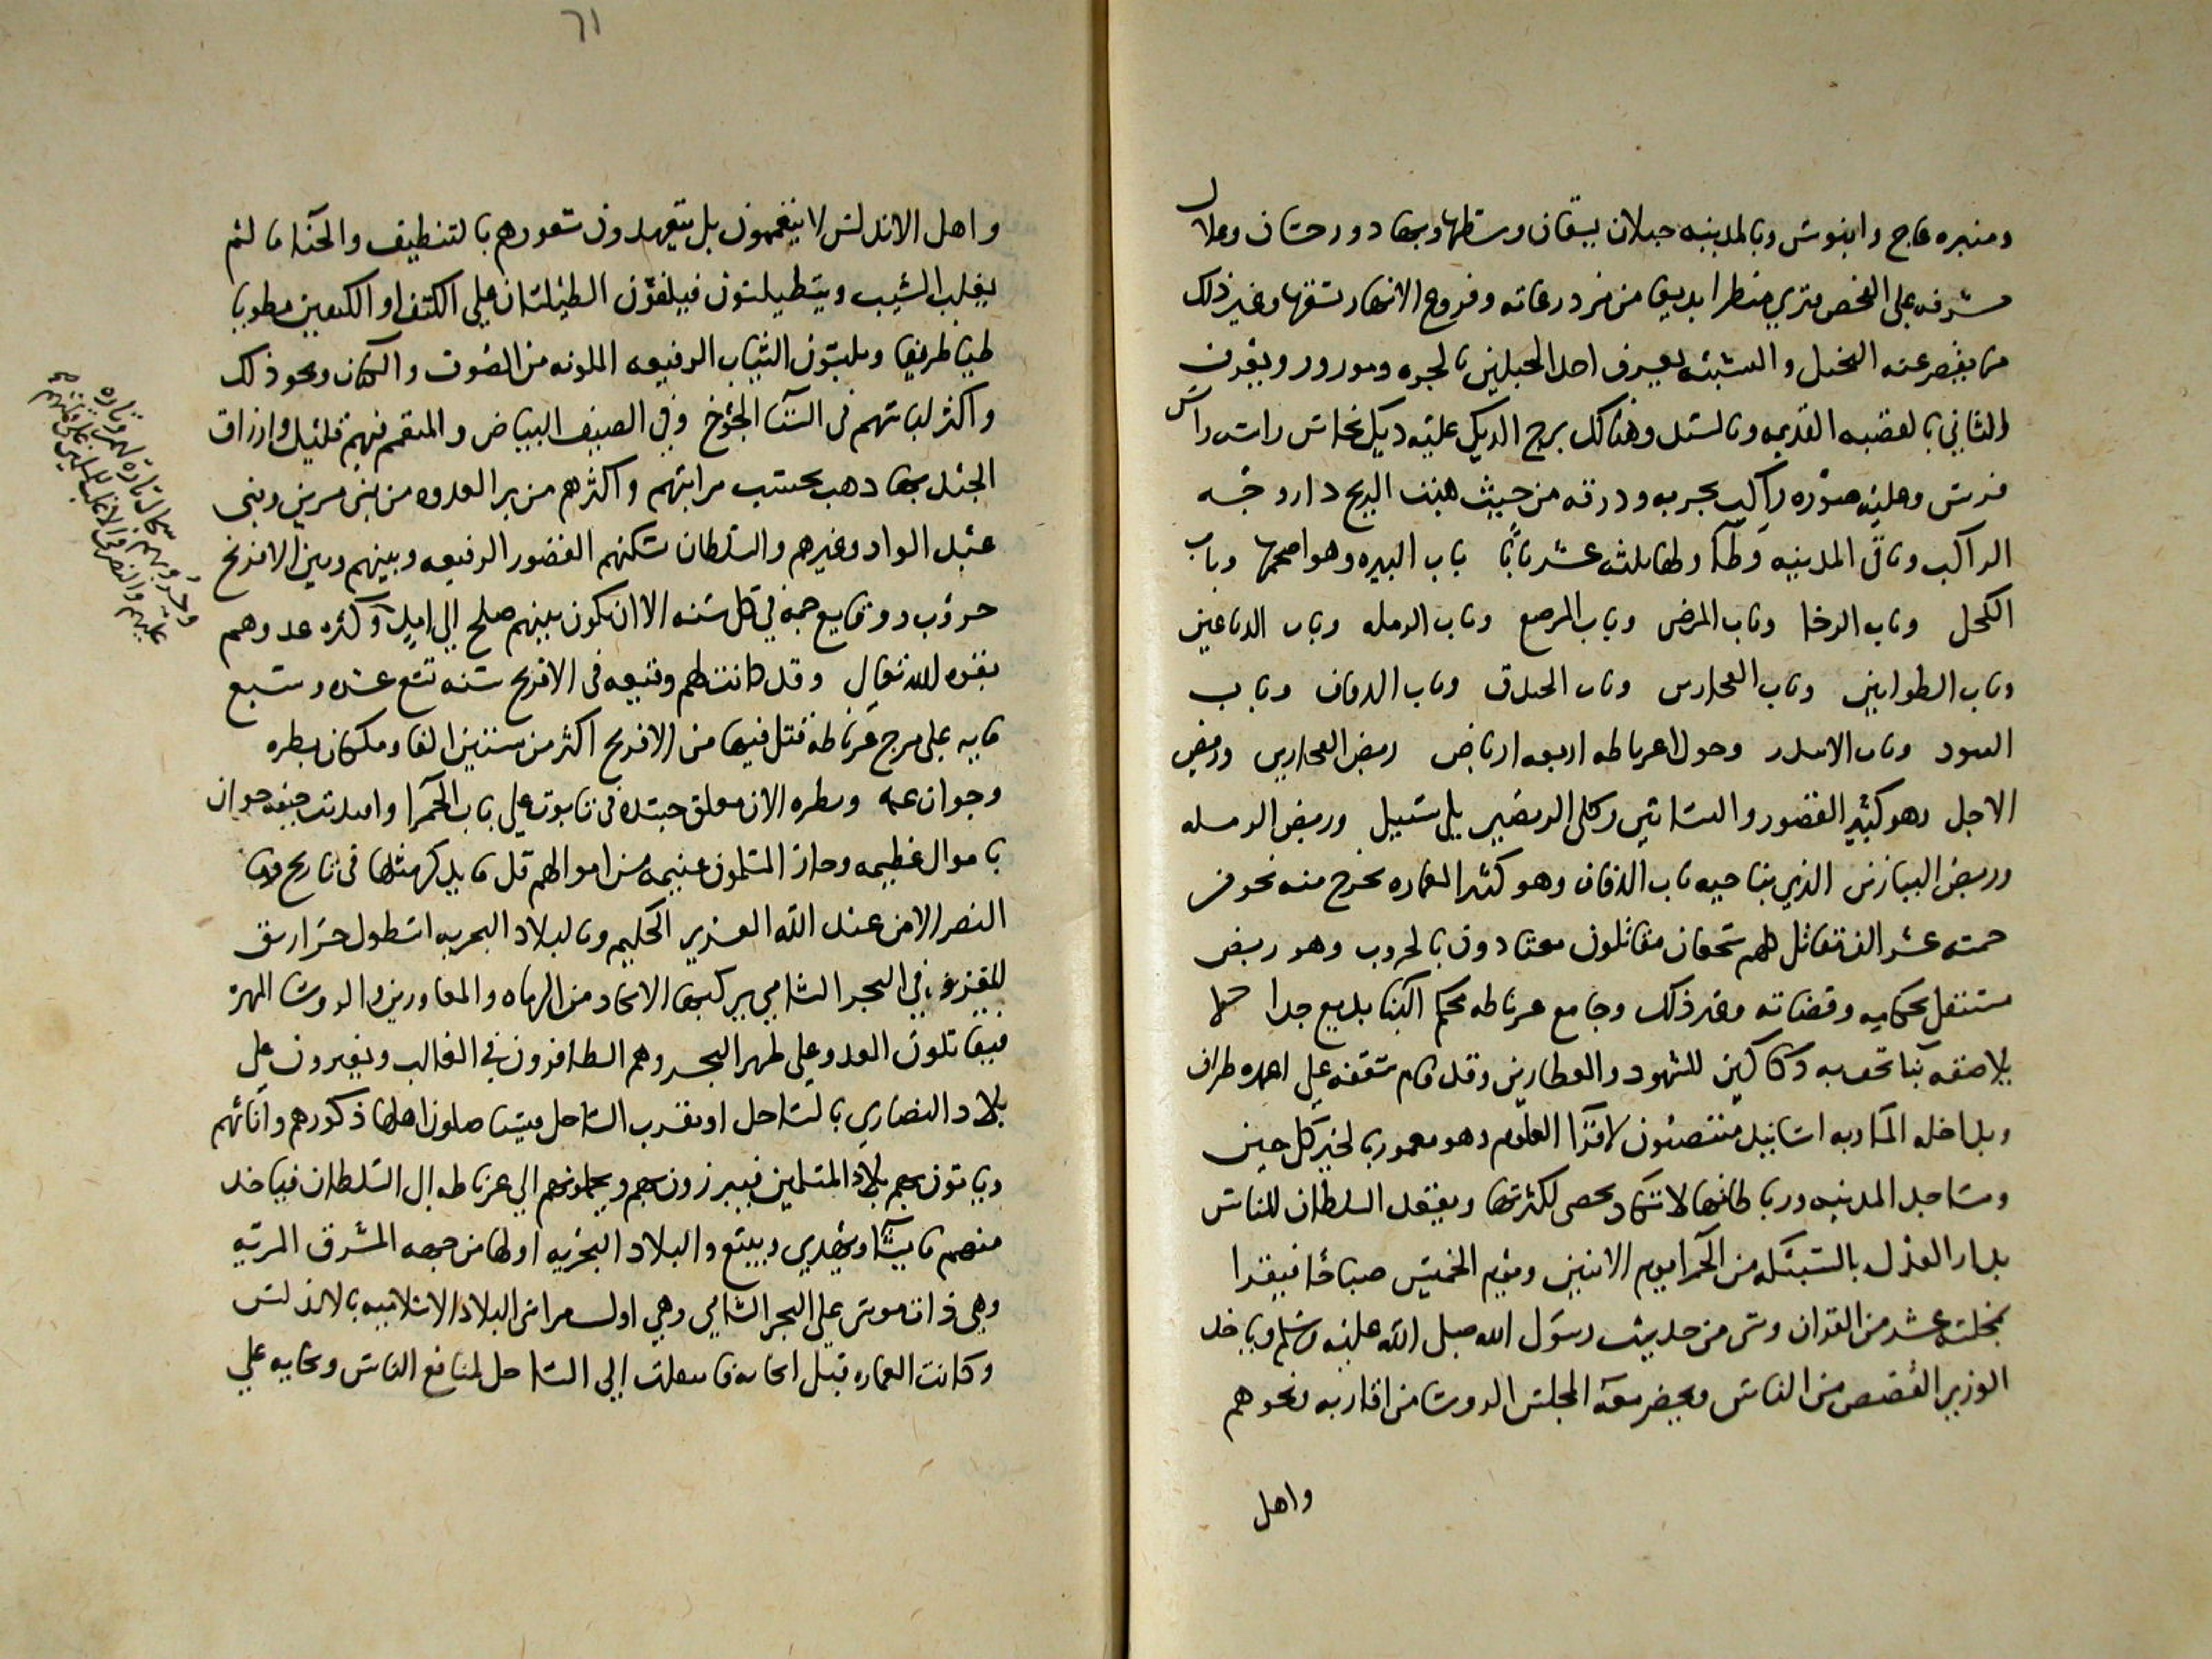 ومنبره عاج وابنوس وبالمدينه جبلان يشقان وسطها وبها دور حسان وعلال
مشرفه على الفحص فتري منظرا بديعا من مزدرعاته وفروع الانهار تشقها وغير ذلك
مما يقصر عنه التخيل والتشبيه يعرف احد الجبلين بالخزه ومورور ويعرف
الثاني بالقصبه القديمه وبالسند وهناك برج الديك عليه ديك نحاس راسه راس
فرس وعليه صوره راكب بحربه ودرقه من حيث هبت الريح دار وجه
الراكب وباقي المدينه وطا ولها ثلاثه عشر بابا باب البيره وهو اضخمها وباب
الكحل وباب الرخا وباب المرضى وباب المصرع وباب الرمله وباب الدباغين
وباب الطوابين وباب الفخارين وباب الخندق وباب الدفاف وباب
البنود وباب الاسدر وحول اغرناطه اربعه ارباض ربض الفخارين وربض
الاجل وهو كثير القصور والبساتين وكلى الربضين يلي شنيل وربض الرمله
وربض البيازين الذي بناحيه باب الدفاف وهو كثير العماره يخرج منه نحو من
خمسه عشر الف مقاتل كلهم شجعان مقاتلون معتادون بالحروب وهو ربض
مستقل بحكامه وقضاته وغير ذلك وجامع غرناطه محكم البنا بديع جدا لا
يلاصقه بنا تحف به دكاكين للشهود والعطارين وقد قام سقفه على اعمده ظراف
وبداخله الماء وبه اسانيد منتصبون لاقرا العلوم وهو معمور بالخير كل حين
ومساجد المدينه ورباطاتها لا تكاد تحصى لكثرتها ويقعد السلطان للناس
بدار العدل بالسبيكه من الحمرا يوم الاثنين ويوم الخميس صباحا فيقرا
بمجلسه عشر من القران وشى من حديث رسول الله صلى الله عليه وسلم وياخذ
الوزير القصص من الناس ويحضر معه المجلس الروسا من اقاربه ونحوهم
واهل
٦١
واهل الاندلس لا يتعممون بل يتعهدون شعورهم بالتنظيف والحنا ما لم
يغلب الشيب ويتطيلسون فيلقون الطيلسان على الكتف او الكتفين مطويا
طيا ظريفا ويلبسون الثياب الرفيعه الملونه من الصوف والكتان ونحو ذلك
واكثر لباسهم في الشتا الجوخ وفي الصيف البياض والمتعمم فيهم قليل وارزاق
الجند بها ذهب بحسب مراتبهم واكثرهم من بر العدوه من بني مرين وبني
عبد الواد وغيرهم والسلطان تسكنهم القصور الرفيعه وبينهم وبين الافرنج
حروب ووقايع جمه في كل سنه الا ان يكون بينهم صلح الي امد وكثره عدوهم
بقوه الله تعالى وقد كانت لهم وقيعه في الافرنج سنه تسع عشره وسبع
مايه على مرج غرناطه قتل فيها من الافرنج اكثر من ستين الفا وملكان بطره
وجوان عمه وبطره الان معلق جسده في تابوت على باب الحمرا وافتديت جيفه جوان
باموال عظيمه وحاز المسلمون غنيمه من اموالهم قل ما يذكر مثلها في تاريخ وما
النصر الا من عند الله العزيز الحكيم وبالبلاد البحريه اسطول حراريق
للغزو في البحر الشامي يركبها الانجاد من الرماه والمغاورين والروسا المهره
فيقاتلون العدو على ظهر البحر وهم الظافرون في الغالب ويغيرون على
بلاد النصاري بالساحل او بقرب الساحل فيستاصلون اهلها ذكورهم واناثهم
وياتون بهم بلاد المسلمين فيبرزون بهم ويحملونهم الي غرناطه الى السلطان فياخذ
منهم ما يشا ويهدي ويبيع والبلاد البحريه اولها من جهه المشرق المريه
وهي ذات مرسى على البحر الشامي وهي اول مراسي البلاد الاسلاميه بالاندلس
وكانت العماره قبل بجانه فانتقلت الي الساحل لمنافع الناس وبجانه على
وحروبهم سجال تاره لهم وتاره
عليهم والنصر في الاغلب للمسلمين على قلتهم